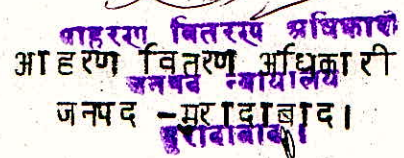 आहरण वितरण अधिकारी
आहरण वितरण अधिकारी
जनपद न्यायालय
जनपद -मुरादाबाद।
मुरादाबाद।